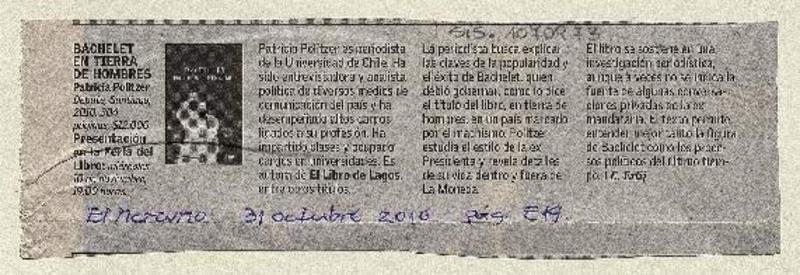 SIS. 1070977
BACHELET
EN TIERRA
DE HOMBRES
Patricia Politzer
Debate, Santiago,
2010, 304
páginas, $12.000
Presentación
en la Feria del
Libro: miércoles
10 de noviembre,
19:00 horas.
Patricia Politzer es periodista
de la Universidad de Chile. Ha
sido entrevistadora y analista
política de diversos medios de
comunicación del país y ha
desempeñado altos cargos
ligados a su profesión. Ha
impartido clases y ocupado
cargos en universidades. Es
autora de El Libro de Lagos,
entre otros títulos.
La periodista busca explicar
las claves de la popularidad y
el éxito de Bachelet, quien
debió gobernar, como lo dice
el título del libro, en tierra de
hombres, en un país marcado
por el machismo. Politzer
estudia el estilo de la ex
Presidenta y revela detalles
de su vida dentro y fuera de
La Moneda.
El libro se sostiene en una
investigación periodística,
aunque a veces no se indica la
fuente de algunas conversa-
ciones privadas de la ex
mandataria. El texto permite
entender mejor tanto la figura
de Bachelet como los proce-
sos políticos del último tiem-
po.
El Mercurio 31 octubre 2010 pág. E19.